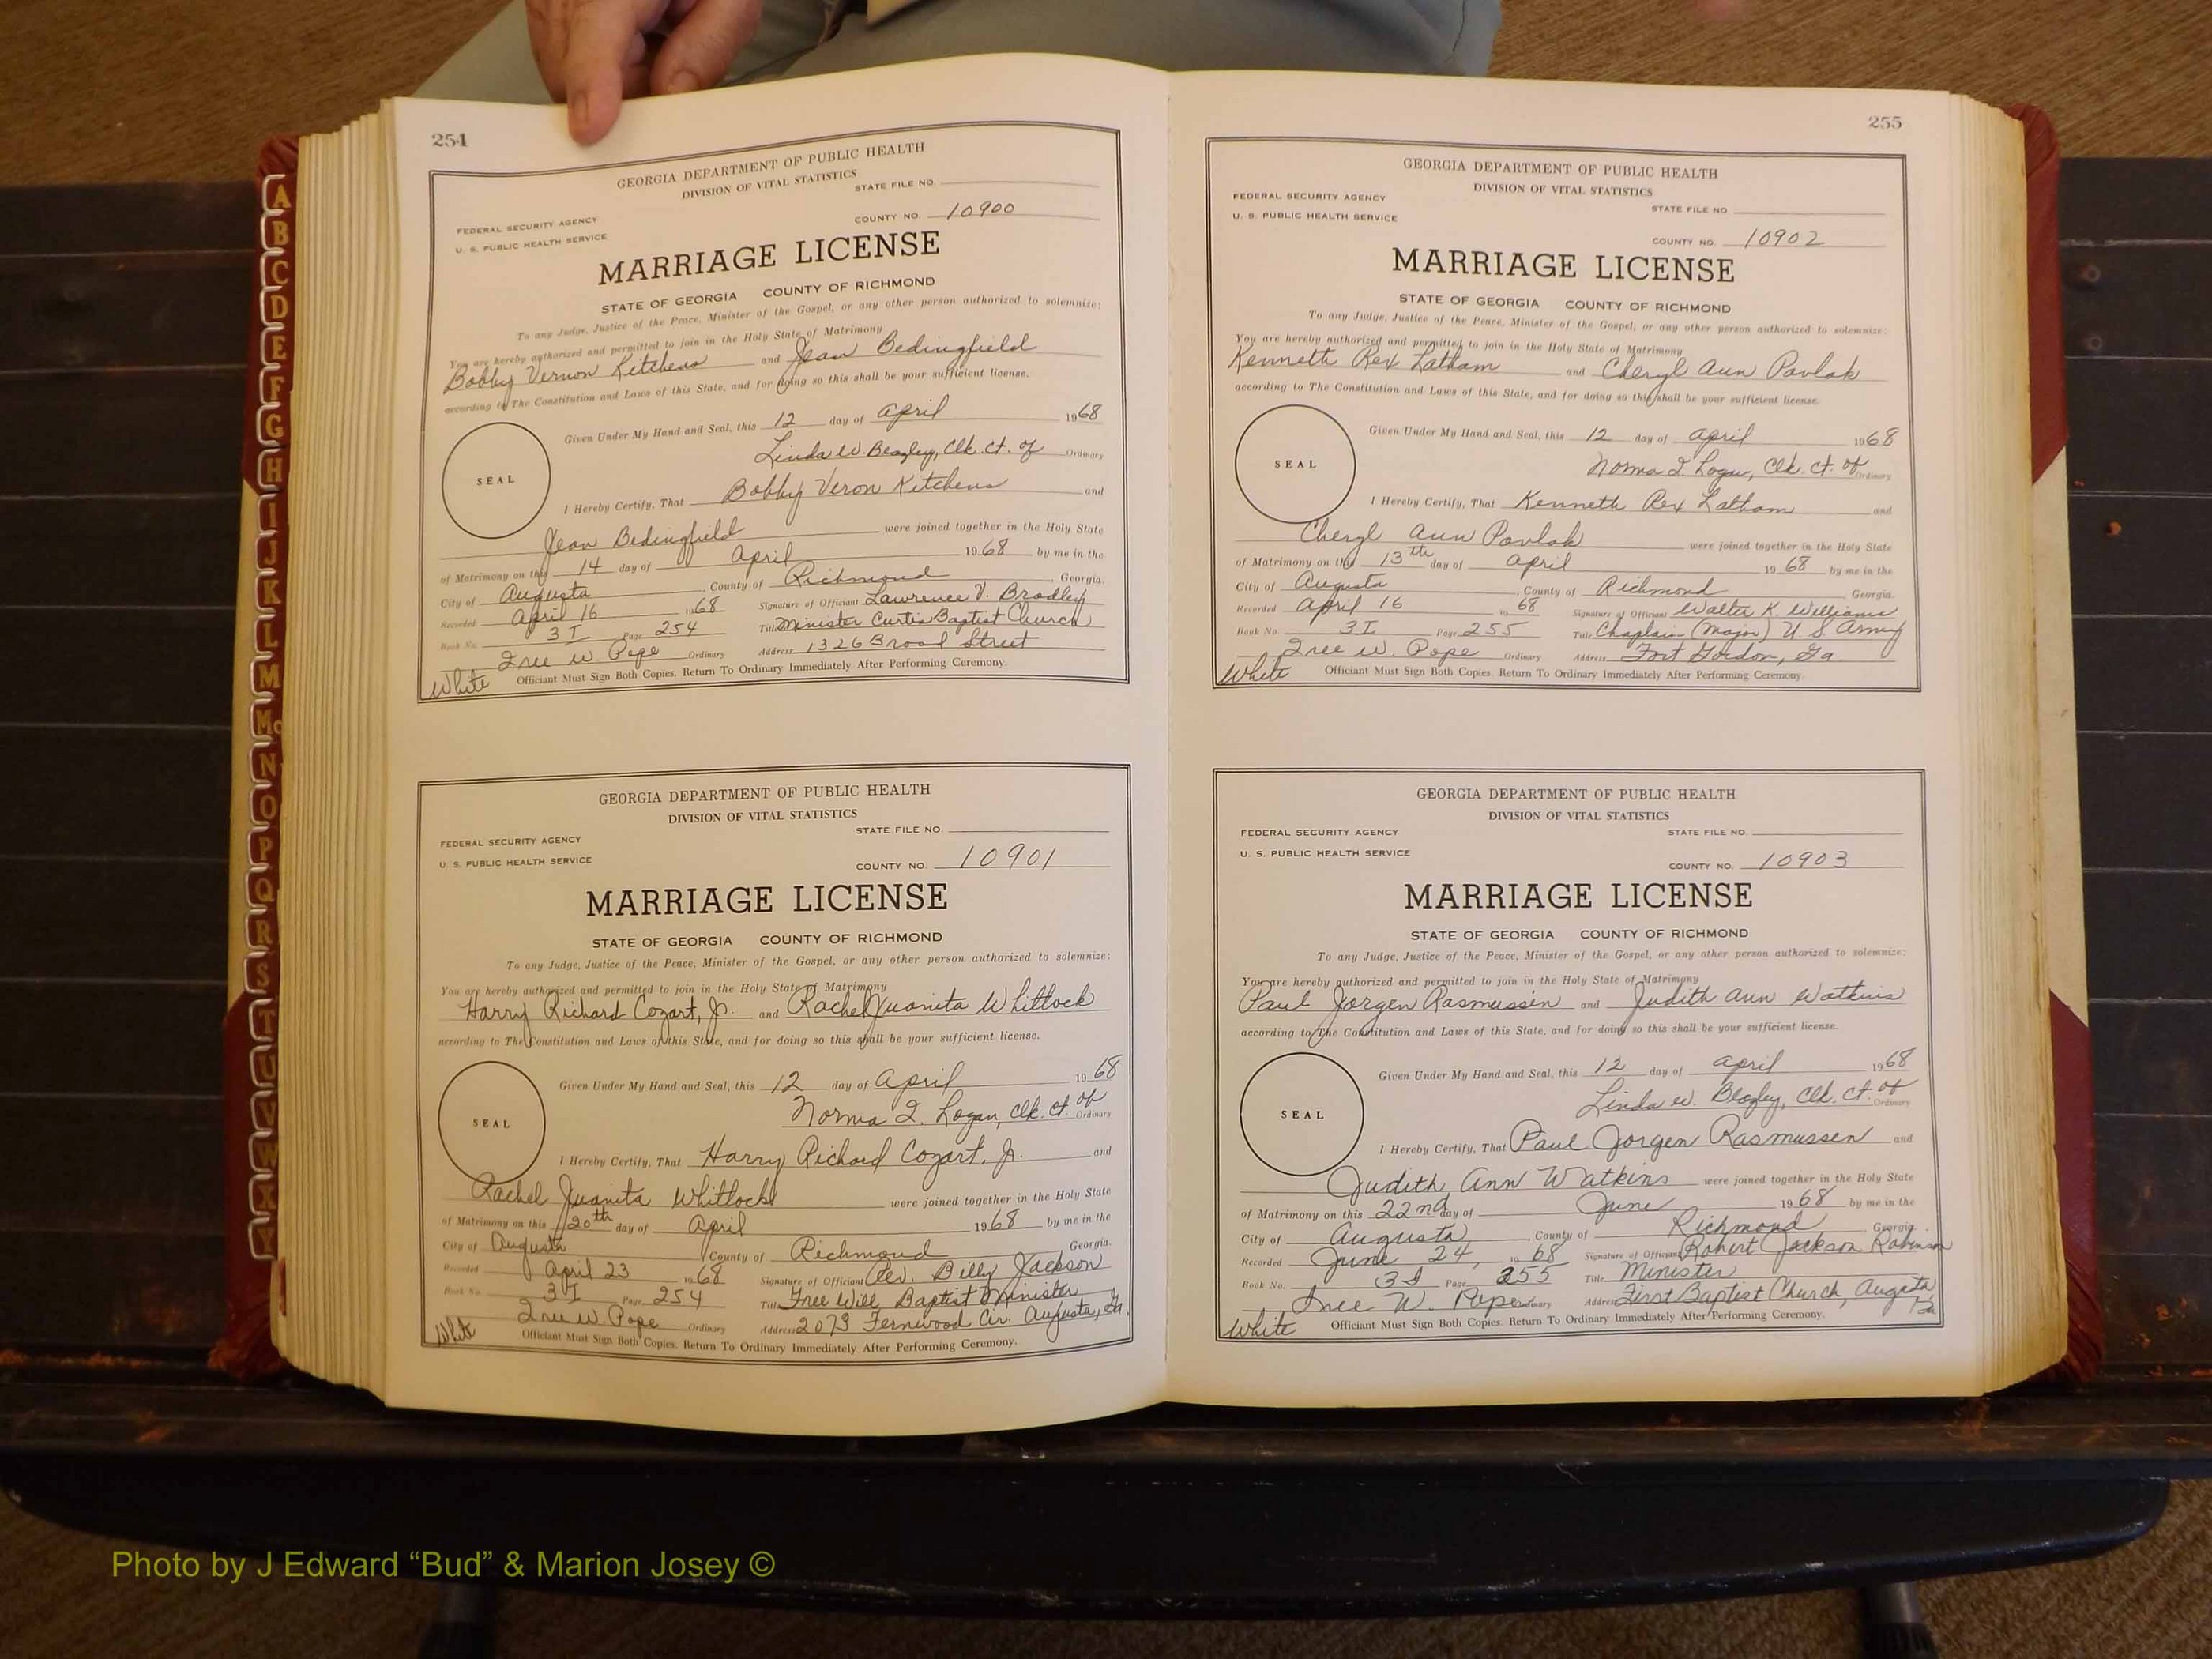 254
GEORGIA DEPARTMENT OF PUBLIC HEALTH
DIVISION OF VITAL STATISTICS
STATE FILE NO.
FEDERAL SECURITY AGENCY
U. S. PUBLIC HEALTH SERVICE
COUNTY NO. 10900
MARRIAGE LICENSE
STATE OF GEORGIA COUNTY OF RICHMOND
To any Judge, Justice of the Peace, Minister of the Gospel, or any other person authorized to solemnize:
You are hereby authorized and permitted to join in the Holy State of Matrimony
Bobby Vernon Kitchens and Jean Bedingfield
according to The Constitution and Laws of this State, and for doing so this shall be your sufficient license.
Given Under My Hand and Seal, this 12 day of April 1968
Linda W. Beazley, Clk. Ct. of Ordinary
SEAL
I Hereby Certify, That Bobby Veron Kitchens and
Jean Bedingfield were joined together in the Holy State
of Matrimony on this 14 day of April 1968 by me in the
City of Augusta, County of Richmond, Georgia.
Recorded April 16 1968 Signature of Officiant Lawrence V. Bradley
Book No. 3I Page 254 Title Minister Curtis Baptist Church
W. Pope Ordinary Address 1326 Broad Street
White Officiant Must Sign Both Copies. Return To Ordinary Immediately After Performing Ceremony.
GEORGIA DEPARTMENT OF PUBLIC HEALTH
DIVISION OF VITAL STATISTICS
STATE FILE NO.
FEDERAL SECURITY AGENCY
U. S. PUBLIC HEALTH SERVICE
COUNTY NO. 10901
MARRIAGE LICENSE
STATE OF GEORGIA COUNTY OF RICHMOND
To any Judge, Justice of the Peace, Minister of the Gospel, or any other person authorized to solemnize:
You are hereby authorized and permitted to join in the Holy State of Matrimony
Harry Richard Cozart, Jr. and Rachel Juanita Whitlock
according to The Constitution and Laws of this State, and for doing so this shall be your sufficient license.
Given Under My Hand and Seal, this 12 day of April 1968
Norma I. Logan, Clk. Ct. of Ordinary
SEAL
I Hereby Certify, That Harry Richard Cozart, Jr. and
Rachel Juanita Whitlock were joined together in the Holy State
of Matrimony on this 20th day of April 1968 by me in the
City of Augusta County of Richmond Georgia.
Recorded April 23 1968 Signature of Officiant Rev. Billy Jackson
Book No. 3I Page 254 Title Free Will Baptist Minister
W. Pope Ordinary Address 2073 Fernwood Cir. Augusta, Ga.
White Officiant Must Sign Both Copies. Return To Ordinary Immediately After Performing Ceremony.
255
GEORGIA DEPARTMENT OF PUBLIC HEALTH
DIVISION OF VITAL STATISTICS
FEDERAL SECURITY AGENCY
STATE FILE NO.
U. S. PUBLIC HEALTH SERVICE
COUNTY NO. 10902
MARRIAGE LICENSE
STATE OF GEORGIA COUNTY OF RICHMOND
To any Judge, Justice of the Peace, Minister of the Gospel, or any other person authorized to solemnize:
You are hereby authorized and permitted to join in the Holy State of Matrimony
Kenneth Rex Latham and Cheryl Ann Pavlak
according to The Constitution and Laws of this State, and for doing so this shall be your sufficient license.
Given Under My Hand and Seal, this 12 day of April 1968
Norma I. Logan, Clk. Ct. of Ordinary
SEAL
I Hereby Certify, That Kenneth Rex Latham and
Cheryl Ann Pavlak were joined together in the Holy State
of Matrimony on this 13th day of April 1968 by me in the
City of Augusta, County of Richmond Georgia.
Recorded April 16 1968 Signature of Officiant Walter K. Williams
Book No. 3I Page 255 Title Chaplain (Major) U S Army
W. Pope Ordinary Address Fort Gordon, Ga.
White Officiant Must Sign Both Copies. Return To Ordinary Immediately After Performing Ceremony.
GEORGIA DEPARTMENT OF PUBLIC HEALTH
DIVISION OF VITAL STATISTICS
FEDERAL SECURITY AGENCY
STATE FILE NO.
U. S. PUBLIC HEALTH SERVICE
COUNTY NO. 10903
MARRIAGE LICENSE
STATE OF GEORGIA COUNTY OF RICHMOND
To any Judge, Justice of the Peace, Minister of the Gospel, or any other person authorized to solemnize:
You are hereby authorized and permitted to join in the Holy State of Matrimony
Paul Jorgen Rasmussen and Judith Ann Watkins
according to The Constitution and Laws of this State, and for doing so this shall be your sufficient license.
Given Under My Hand and Seal, this 12 day of April 1968
Linda W. Beazley, Clk. Ct. of Ordinary
SEAL
I Hereby Certify, That Paul Jorgen Rasmussen and
Judith Ann Watkins were joined together in the Holy State
of Matrimony on this 22nd day of June 1968 by me in the
City of Augusta, County of Richmond, Georgia.
Recorded June 24, 1968 Signature of Officiant Robert Jackson Robinson
Book No. 3I Page 255 Title Minister
W. Pope Ordinary Address First Baptist Church, Augusta, Ga
White Officiant Must Sign Both Copies. Return To Ordinary Immediately After Performing Ceremony.
A
B
C
D
E
F
G
H
I
J
K
L
M
Mc
N
O
P
Q
R
S
T
U
V
W
X
Y
Photo by J Edward “Bud” & Marion Josey ©